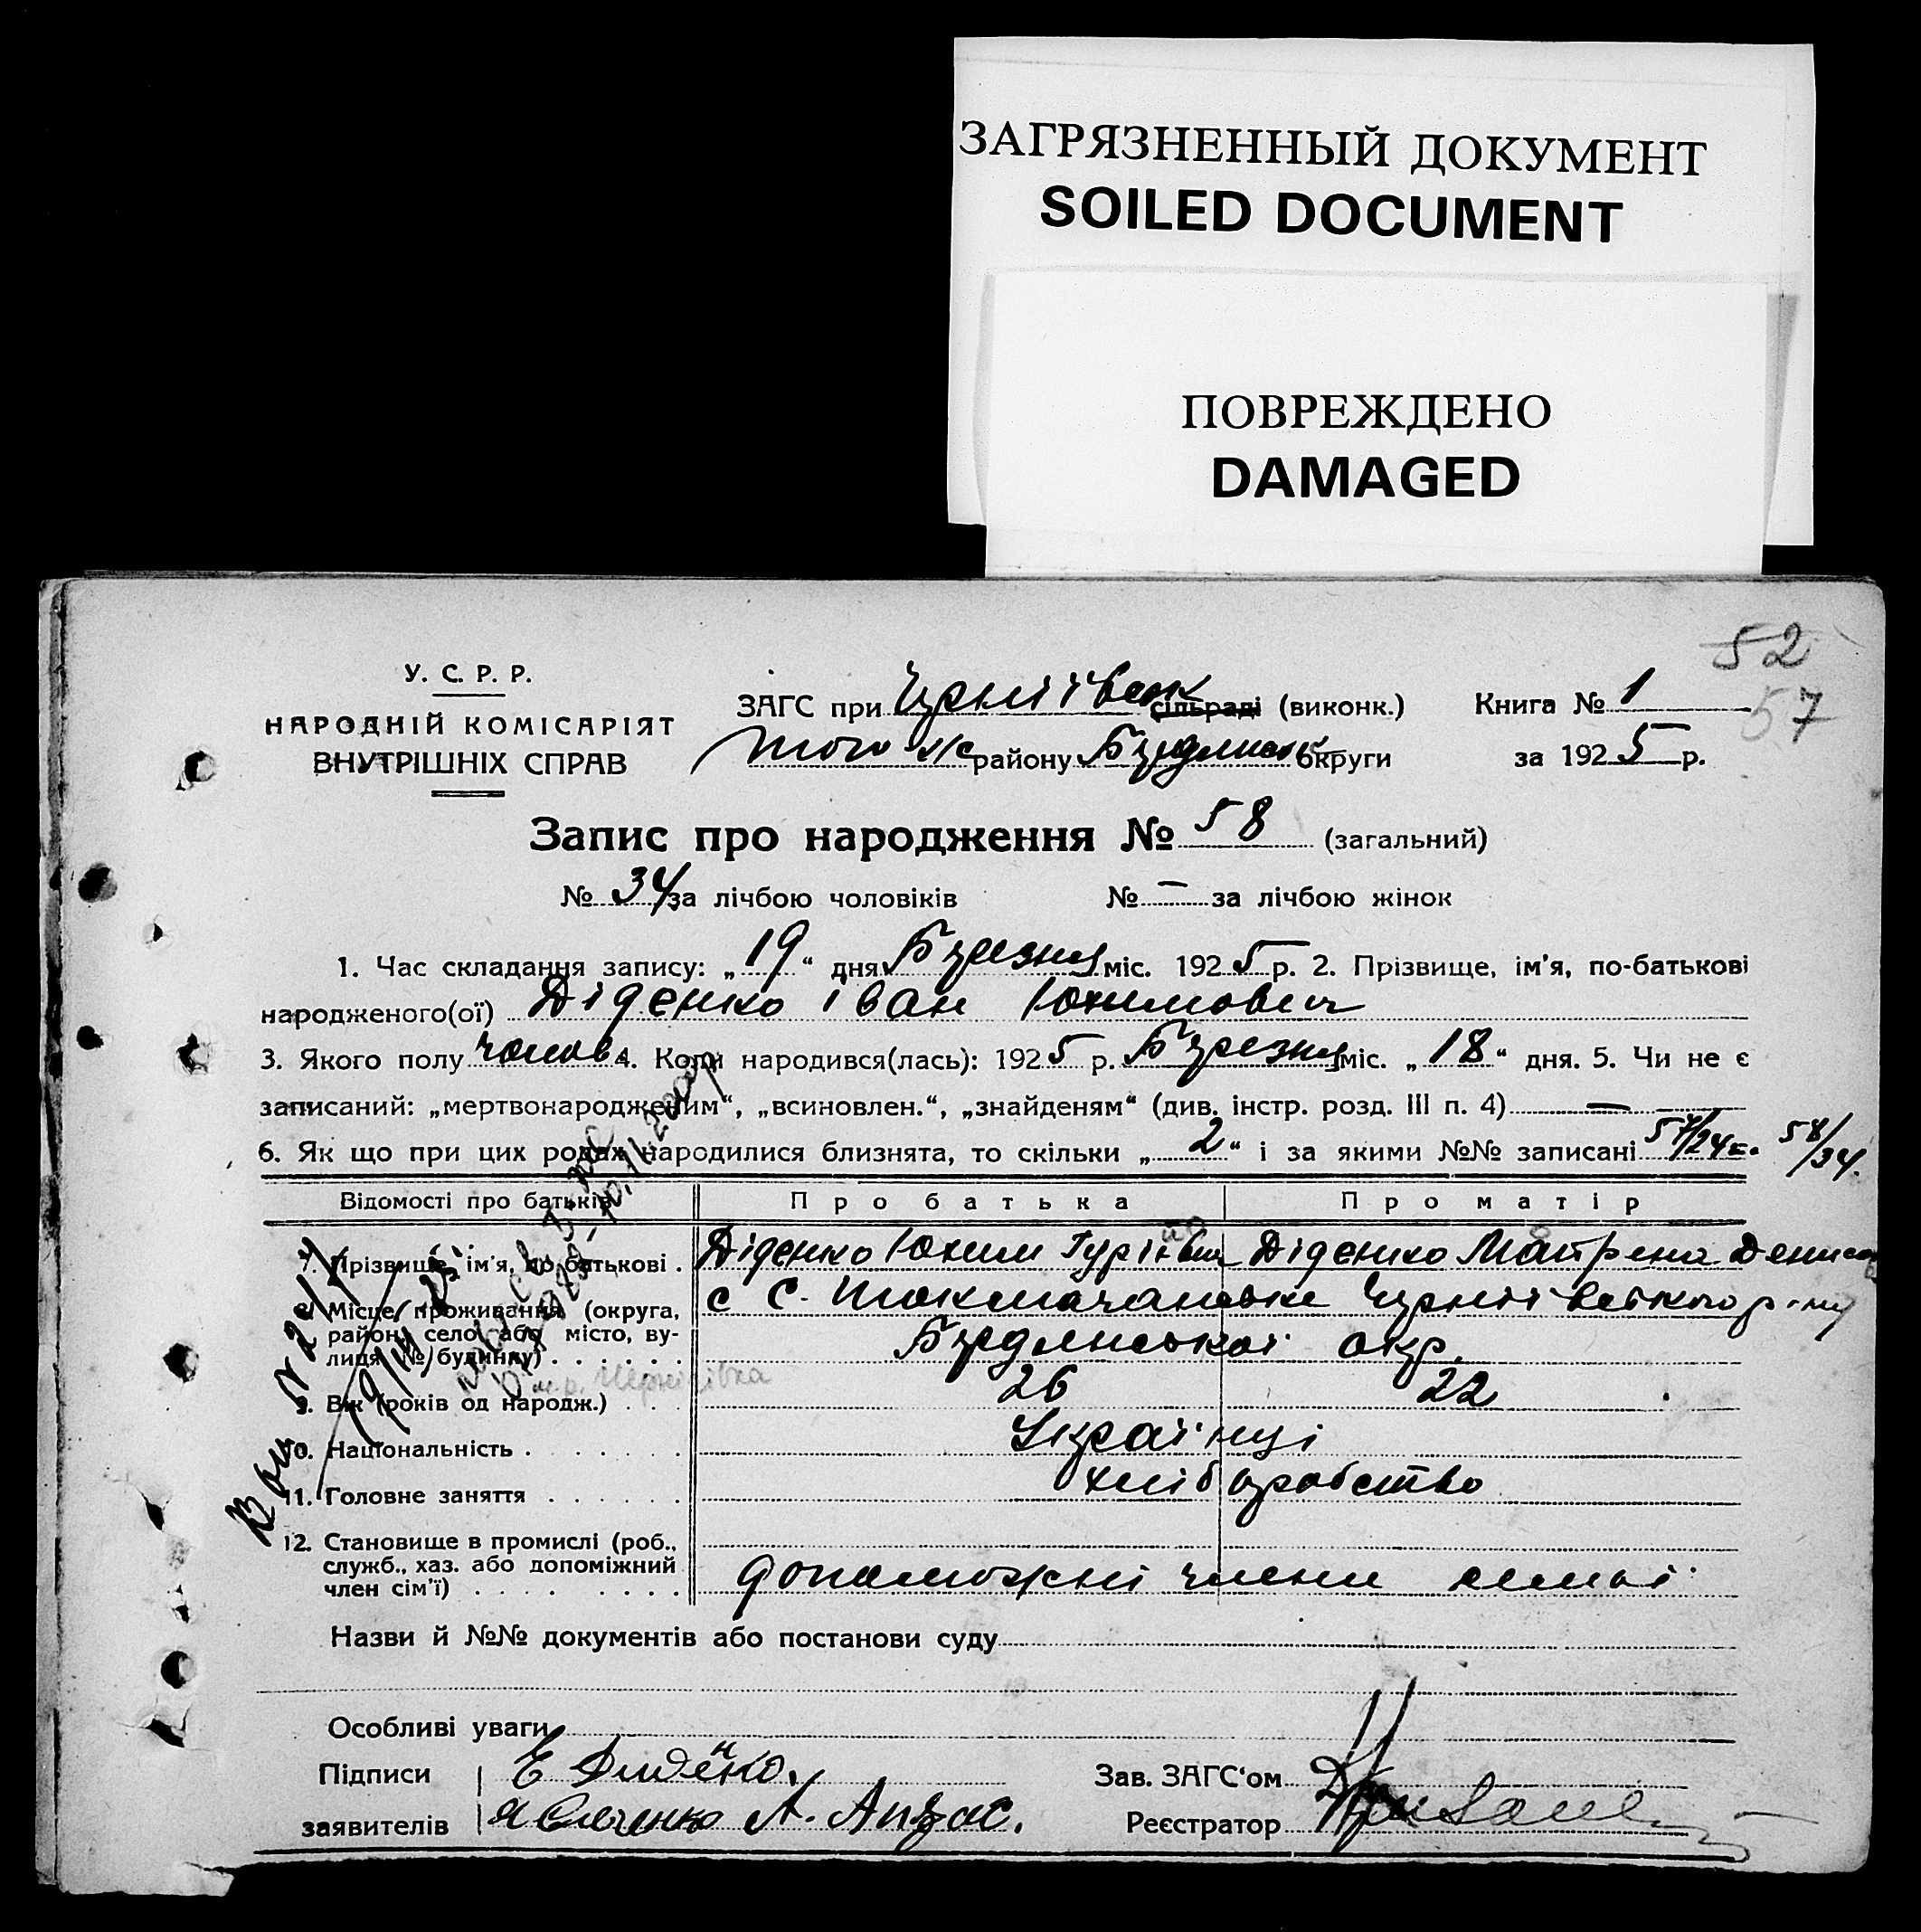 ЗАГРЯЗНЕННЫЙ ДОКУМЕНТ
SOILED DOCUMENT
ПОВРЕЖДЕНО
DAMAGED
52
57
У. С. Р. Р.
НАРОДНІЙ КОМІСАРІЯТ
ВНУТРІШНІХ СПРАВ
ЗАГС при сільраді (виконк.) Книга № 1
району округи за 1925 р.
Запис про народження № 58 (загальний)
№ 34 за лічбою чоловіків № – за лічбою жінок
1. Час складання запису: „19“ дня Березня міс. 1925 р. 2. Прізвище, ім'я, по-батькові
народженого(ої) Діденко Іван Юхимович
3. Якого полу чолов. 4. Коли народився(лась): 1925 р. Березня міс. „18“ дня. 5. Чи не є
записаний: „мертвонародженим“, „всиновлен.“, „знайденям“ (див. інстр. розд. III п. 4) —
6. Як що при цих родах народилися близнята, то скільки „2“ і за якими №№ записані 58/34.
Відомості про батьків Про батька Про матір
7. Прізвище, ім'я, по батькові . Діденко Юхим Діденко Мотрена
8. Місце проживання (округа,
район, село, або місто, ву-
лиця, № будинку) . . . . . . Бердянської окр.
9. Вік (років од народж.) . . . 26 22
10. Національність . . . . . . Українці
11. Головне заняття . . . . . . хлібуробство
12. Становище в промислі (роб.,
служб., хаз. або допоміжний
член сім'ї) . . . . . . . . . допоможні члени
Назви й №№ документів або постанови суду
Особливі уваги
Підписи
Зав. ЗАГС'ом
заявителів
Реєстратор